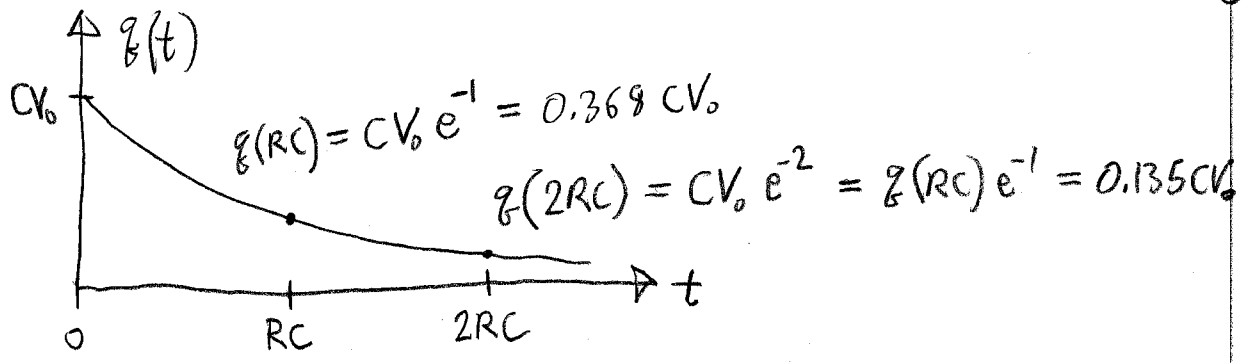 q(t)
CV₀
q(RC) = CV₀ e⁻¹ = 0.368 CV₀
q(2RC) = CV₀ e⁻² = q(RC) e⁻¹ = 0.135 CV₀
t
0 RC 2RC